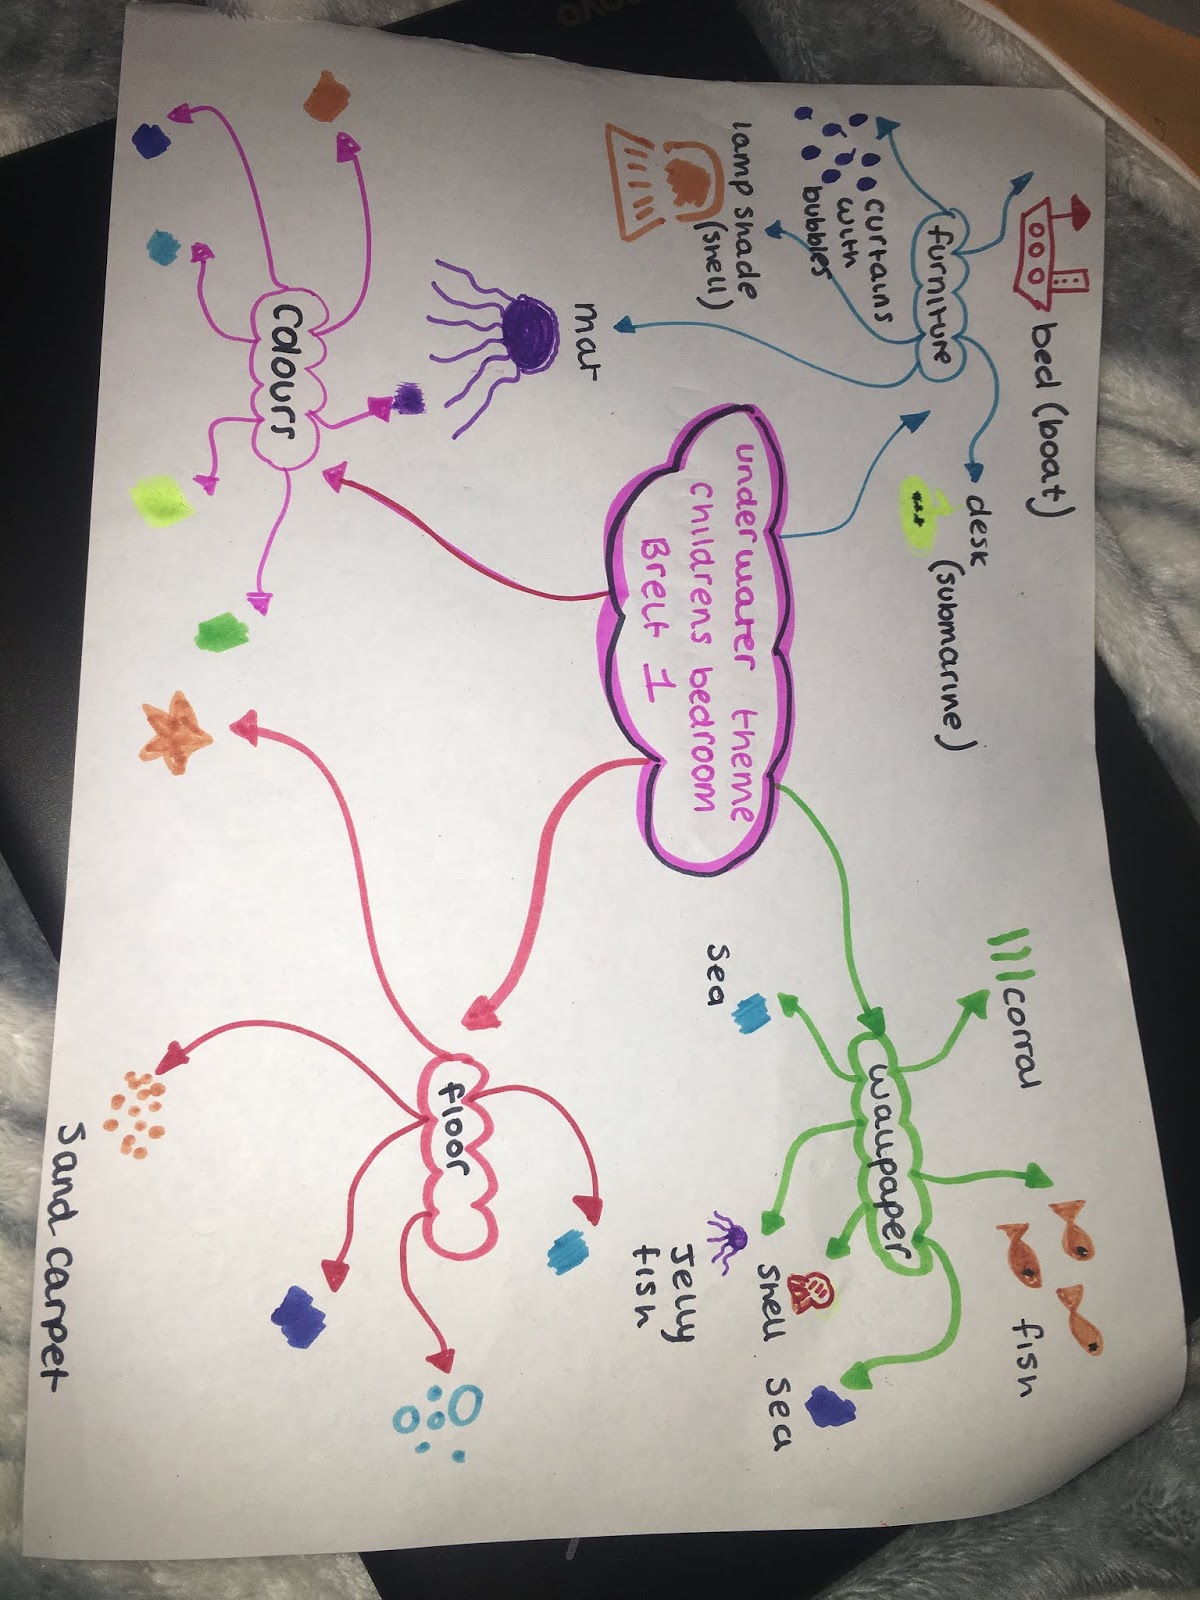 underwater theme
childrens bedroom
Breif 1
furniture
bed (boat)
desk
(submarine)
curtains
with
bubbles
lamp shade
(shell)
mat
colours
wallpaper
corral
fish
sea
shell
sea
Jelly
fish
floor
sand carpet